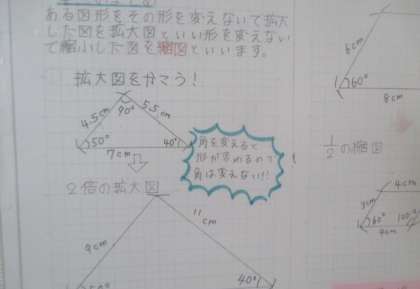 ある図形をその形を変えないで拡大
した図を拡大図といい形を変えない
で縮小した図を縮図といいます。
拡大図をかこう！
4.5cm
5.5cm
90°
50°
40°
7cm
角を変えると
形が変わるので
角は変えない!!
2倍の拡大図
9cm
11
cm
40°
6cm
60°
8cm
1/2の縮図
4cm
3cm
60°
100°
4cm